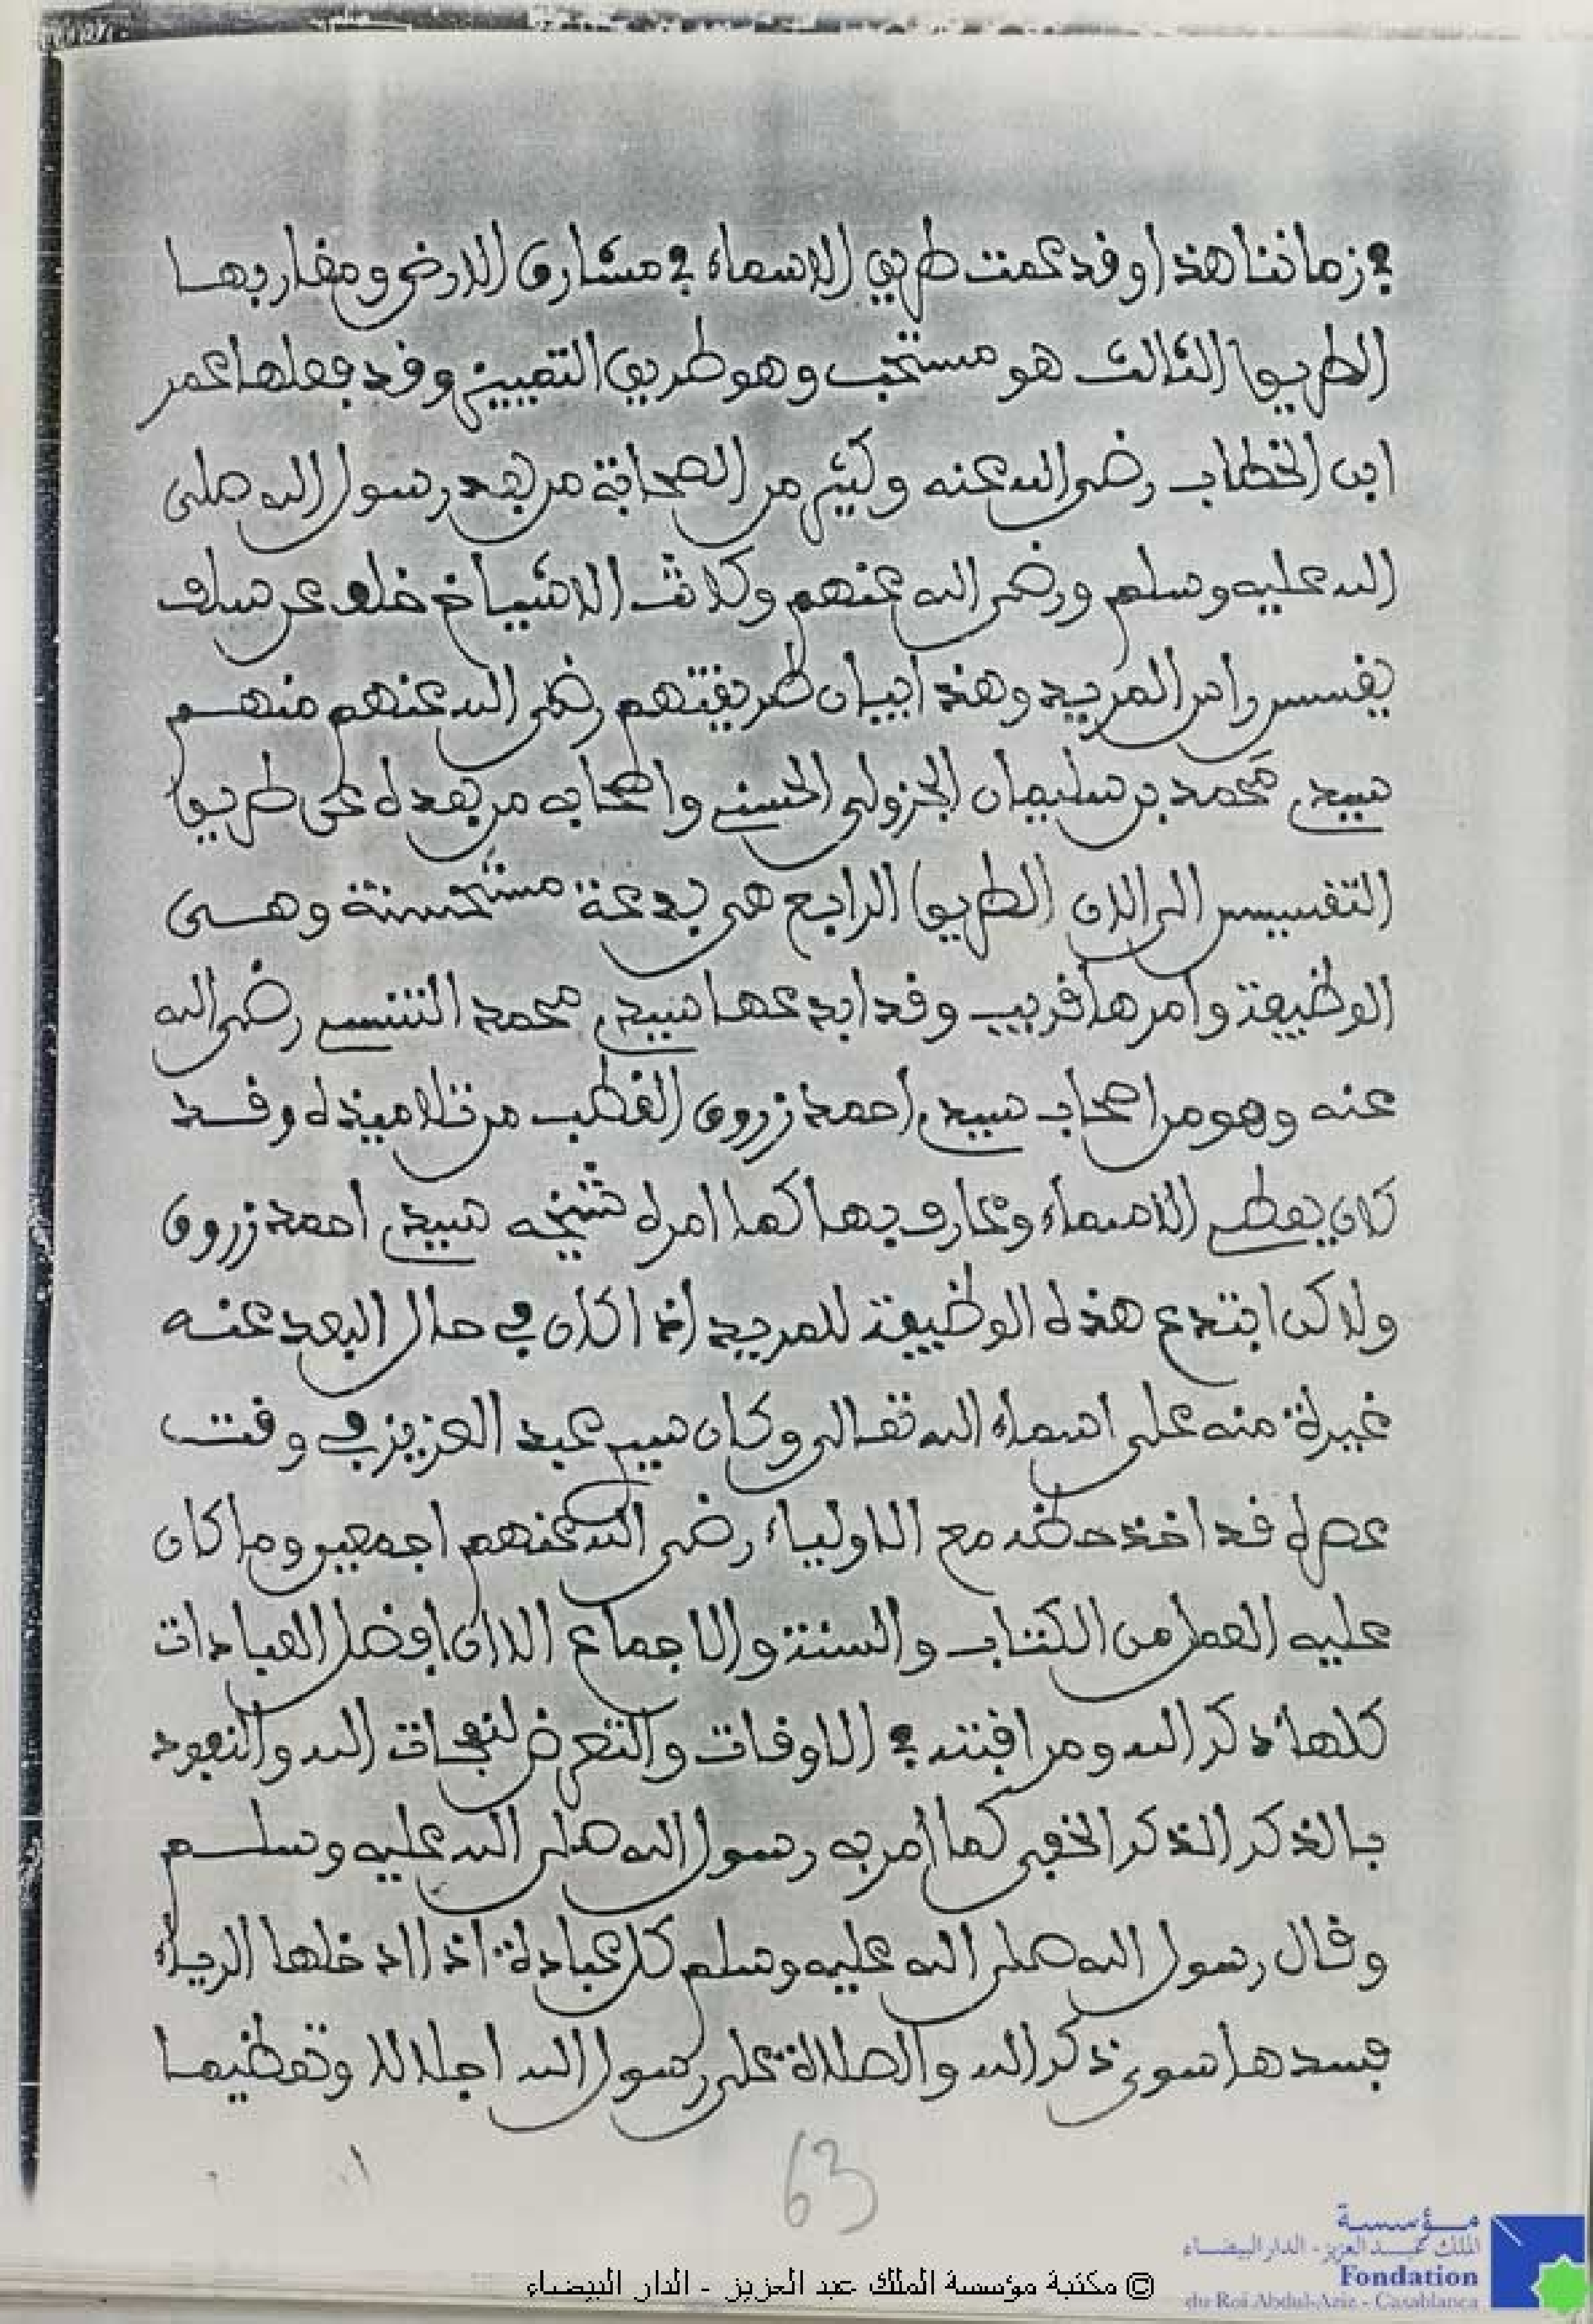 في زماننا هذا وقد عمت طريق الاسماء في مشارق الارض ومغاربها
الطريق الثالث هو مستحب وهو طريق التعيين وقد فعلها عمر
ابن الخطاب رضي الله عنه وكثير من الصحابة من بعد رسول الله صلى
الله عليه وسلم ورضي الله عنهم وكانت الاشياخ خلف عن سلف
يقسس راس المريد وهذا بيان طريقتهم رضي الله عنهم منهم
سيدي محمد بن سليمان الجزولي الحسني واصحابه من بعده على طريق
التقسيس الى الان الطريق الرابع هي بدعة مستحسنة وهي
الوظيفة وامرها قريب وقد ابدعها سيدي محمد التنسي رضي الله
عنه وهو من اصحاب سيدي احمد زروق القطب من تلاميذه وقد
كان يعطي الاسماء وعارف بها كما امره شيخه سيدي احمد زروق
ولاكن ابتدع هذه الوظيفة للمريد اذا كان في حال البعد عنه
غيرة منه على اسماء الله تعالى وكان سيد عبد العزيز في وقت
عصره قد اخذ حظه مع الاولياء رضي الله عنهم اجمعين وما كان
عليه العمل من الكتاب والسنة والاجماع الا ان افضل العبادات
كلها ذكر الله ومراقبته في الاوقات والتعرض لنفحات الله والنعود
بالذكر الذكر الخفي كما امر به رسول الله صلى الله عليه وسلم
وقال رسول الله صلى الله عليه وسلم كل عبادة اذا ادخلها الرياء
فسدها سوى ذكر الله والصلاة على رسول الله اجلالا وتعظيما
63
مؤسسة
الملك عبد العزيز - الدار البيضاء
Fondation
du Roi Abdul-Aziz - Casablanca
© مكتبة مؤسسة الملك عبد العزيز - الدار البيضاء